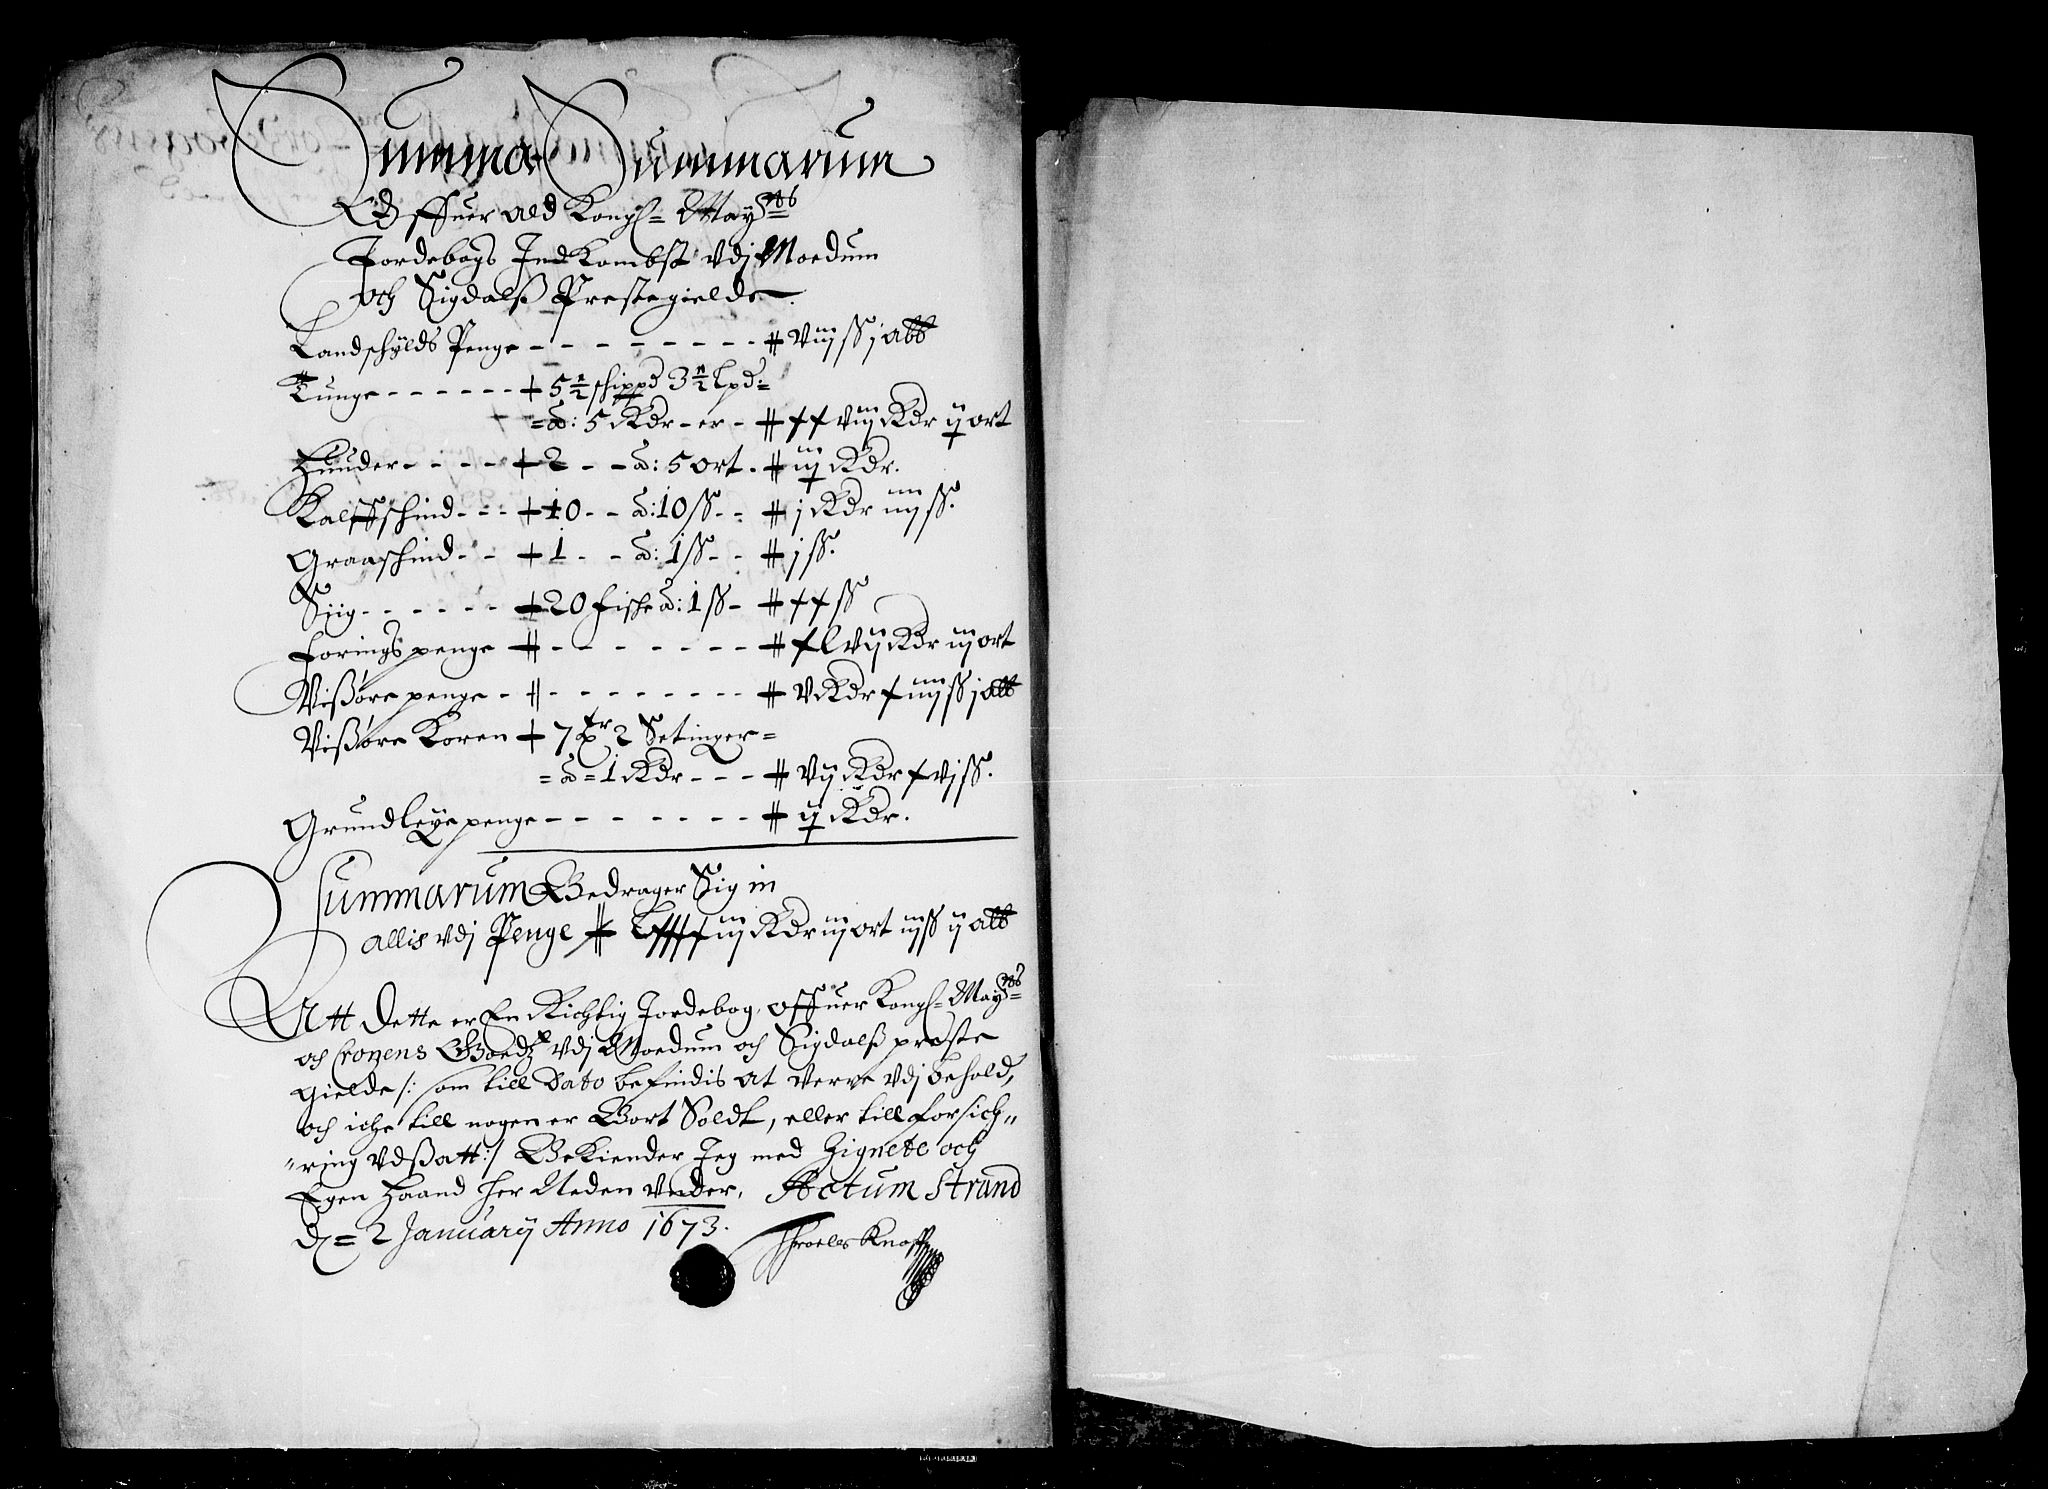 Summa Summarum
offuer ald Kongl= May:ts
Jordebogs Ind Kombst vdj Moedum
och Sigdalß Prestegielde.
Landschylds Penge - - - - - - - - # viij ß j alb
Tunge - - - - - - + 5 1/2 schippd 3 1/2 lpd=
=a: 5 Rdr - er - # xxviij Rdr ij ort
Huuder - - - - + 2 - - a: 5 ort . # iij Rdr.
Kalffschind - - - + 10 - - a: 10 ß - - # j Rdr iiij ß.
Graaschind - - + 1 - - a: 1 ß - - # j ß.
Siig - - - - - - + 20 fische a: 1 ß - # xx ß
Forings penge # - - - - - - # xlvij Rdr iij ort
Vißøre penge - # - - - - - - - - # v Rdr xiiij ß j alb
Vißøre Koren + 7 2 Setinger =
= a = 1 Rdr - - - # vij Rdr xvj ß.
Grundleye penge - - - - - - - # ij Rdr.
Summarum Bedrager Sig in
allis vdj Penge # iij Rdr iij ort iij ß ij alb
Att Dette er En Richtig Jordebog, offuer Kongl= May:ts
och Cronens Goedz vdj Moedum och Sigdalß preste
gielde /: som till Dato befindis at verre vdj behold,
och iche till nogen er Bort Soldt, eller till forsich„
„ring vdßatt :/ Bekiender Jeg med Zignete och
Egen Haand her Neden vnder, Actum Strand
d= 2 January Anno 1673.
Throels Knoff